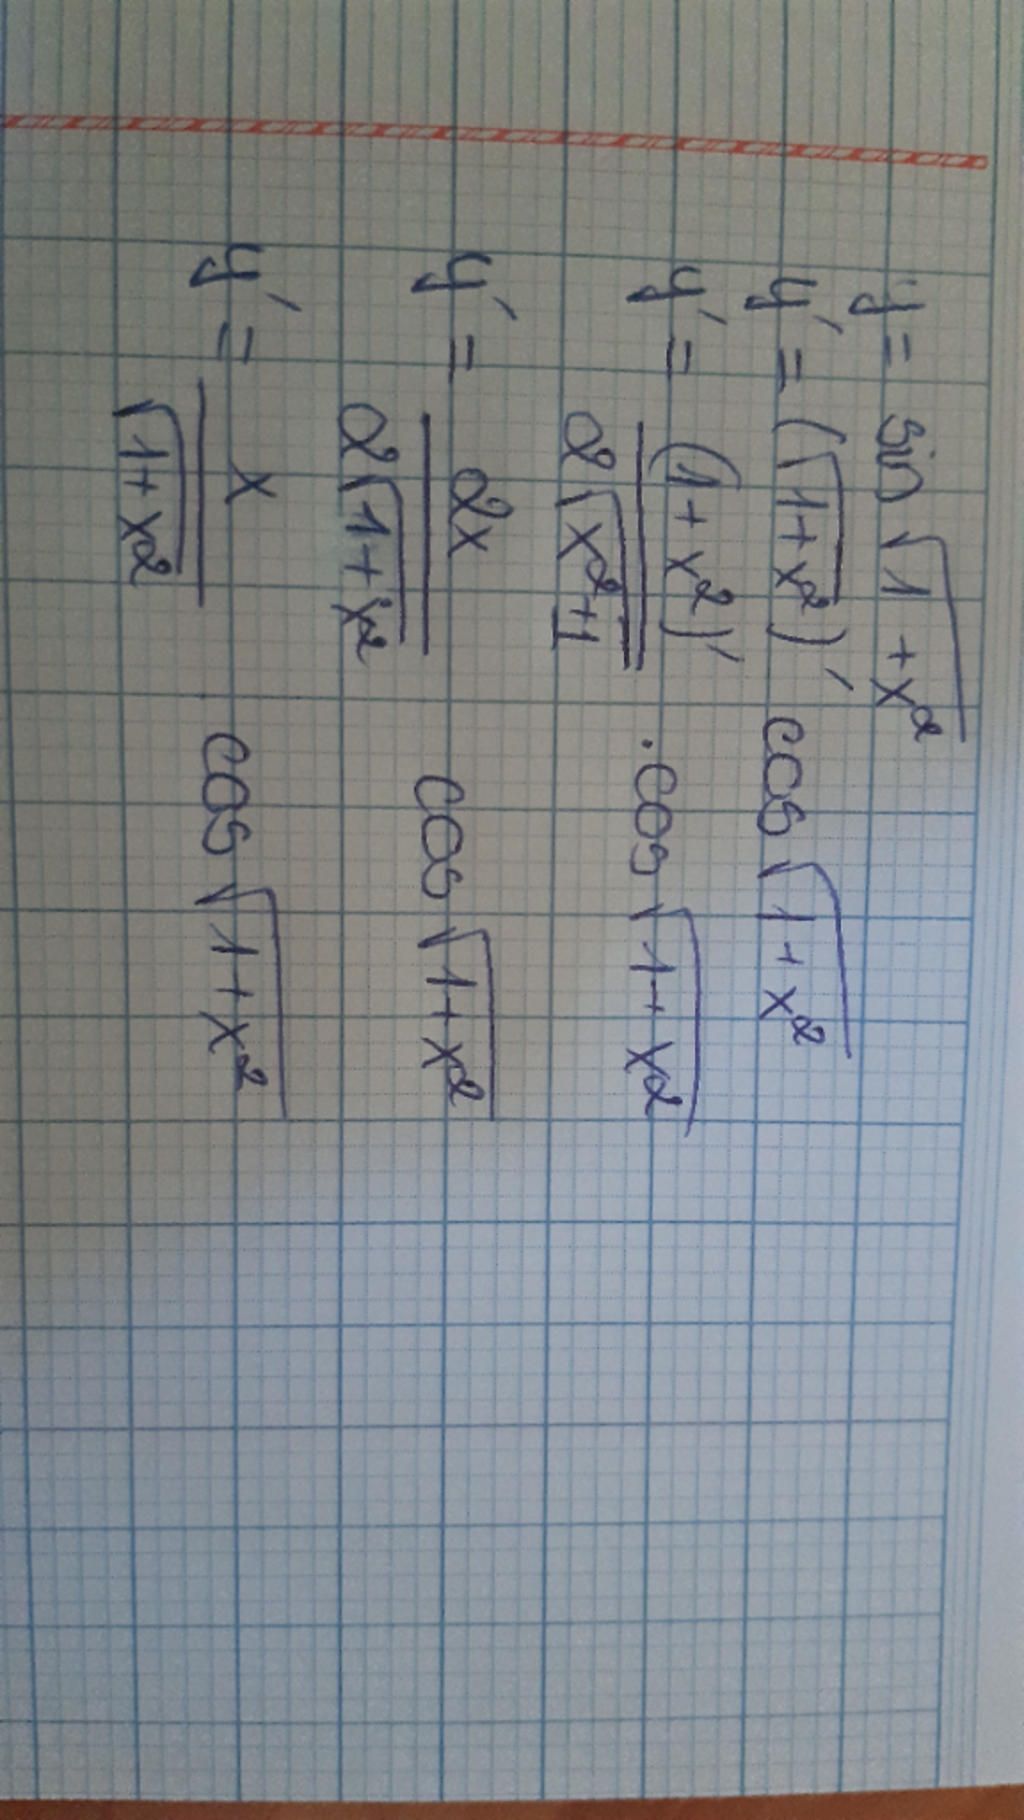 y = sin √(1 + x²)
y' = (√(1+x²))' cos √(1+x²)
y' = (1+x²)' / 2√(x²+1) · cos √(1+x²)
y' = 2x / 2√(1+x²) cos √(1+x²)
y' = x / √(1+x²) cos √(1+x²)